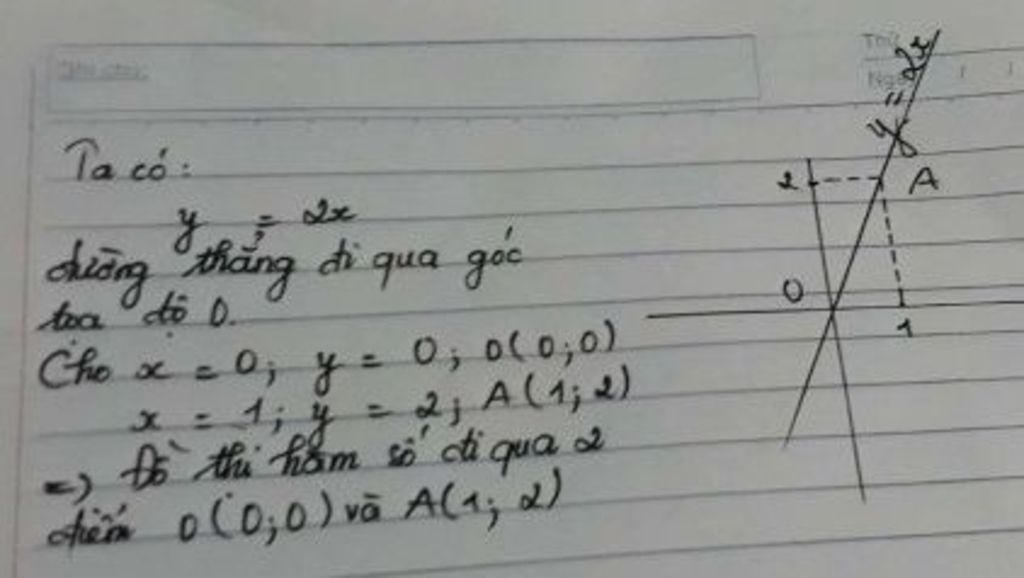 Ta có:
y = 2x
đường thẳng đi qua gốc
tọa độ O.
Cho x = 0; y = 0; O(0;0)
x = 1; y = 2; A(1; 2)
=) Đồ thị hàm số đi qua 2
điểm O(0;0) và A(1; 2)
y = 2x
2
A
O
1